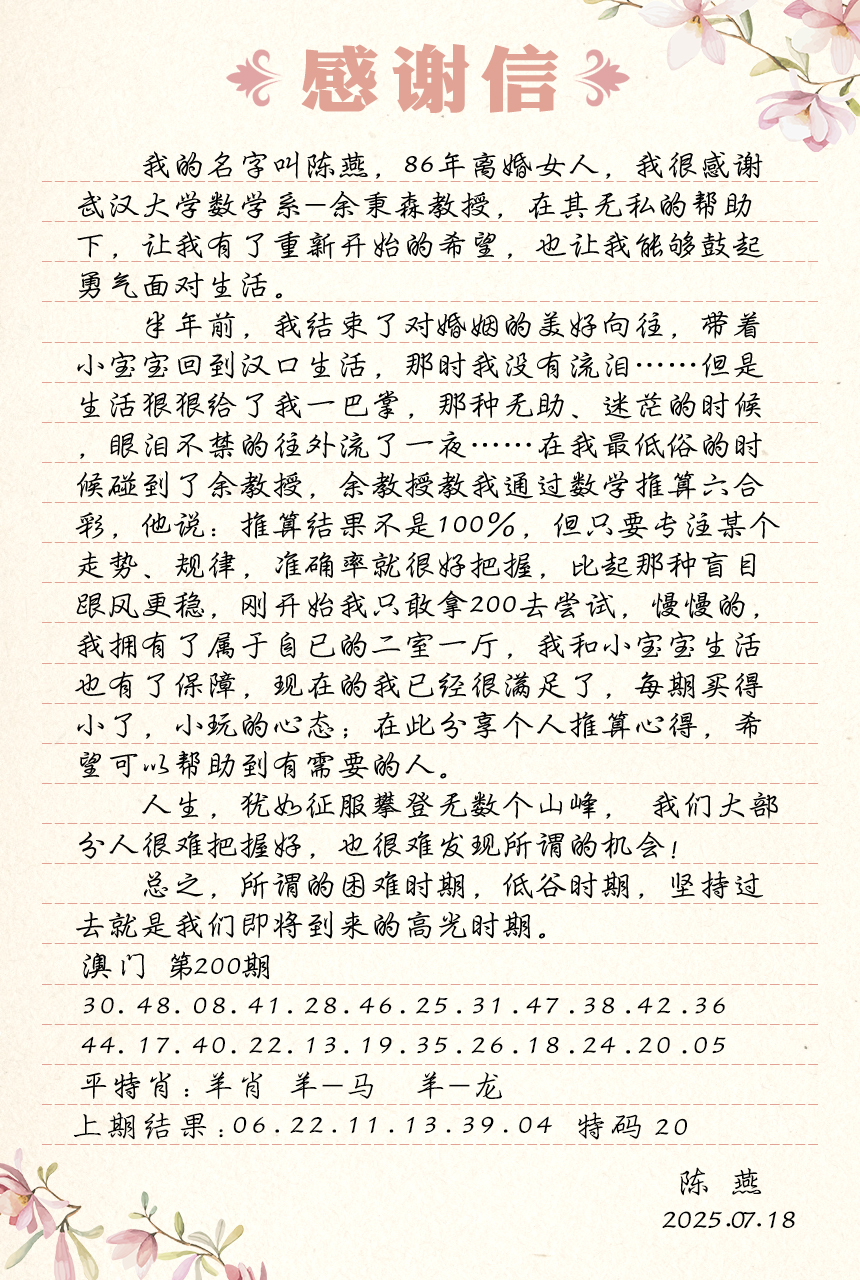 感谢信
我的名字叫陈燕，86年离婚女人，我很感谢
武汉大学数学系—余秉森教授，在其无私的帮助
下，让我有了重新开始的希望，也让我能够鼓起
勇气面对生活。
半年前，我结束了对婚姻的美好向往，带着
小宝宝回到汉口生活，那时我没有流泪……但是
生活狠狠给了我一巴掌，那种无助、迷茫的时候
，眼泪不禁的往外流了一夜……在我最低俗的时
候碰到了余教授，余教授教我通过数学推算六合
彩，他说：推算结果不是100%，但只要专注某个
走势、规律，准确率就很好把握，比起那种盲目
跟风更稳，刚开始我只敢拿200去尝试，慢慢的，
我拥有了属于自已的二室一厅，我和小宝宝生活
也有了保障，现在的我已经很满足了，每期买得
小了，小玩的心态；在此分享个人推算心得，希
望可以帮助到有需要的人。
人生，犹如征服攀登无数个山峰， 我们大部
分人很难把握好，也很难发现所谓的机会！
总之，所谓的困难时期，低谷时期，坚持过
去就是我们即将到来的高光时期。
澳门 第200期
30.48.08.41.28.46.25.31.47.38.42.36
44.17.40.22.13.19.35.26.18.24.20.05
平特肖：羊肖 羊—马 羊—龙
上期结果：06.22.11.13.39.04 特码 20
陈 燕
2025.07.18